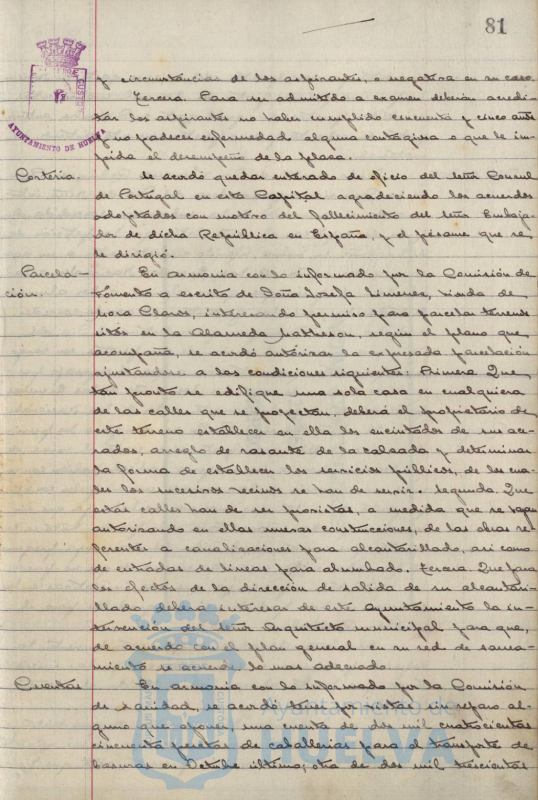 81
AYUNTAMIENTO DE HUELVA
y circunstancias de los aspirantes, o negativa en su caso.
Tercera. Para ser admitido a examen deberán acredi-
tar los aspirantes no haber cumplido cincuenta y cinco años
y no padecer enfermedad alguna contagiosa o que le im-
pida el desempeño de la plaza.
Cortesia.
Se acordó quedar enterado de oficio del señor Consul
de Portugal en esta Capital agradeciendo los acuerdos
adoptados con motivo del fallecimiento del señor Embaja-
dor de dicha República en España, y el pésame que se
le dirigió.
Parcela-
ción.
En armonia con lo informado por la Comisión de
Fomento a escrito de Doña Josefa Jimenez, viuda de
Mora Claros, interesando permiso para parcelar terrenos
sitos en la Alameda Matheson, según el plano que
acompaña, se acordó autorizar la expresada parcelación
ajustandose a las condiciones siguientes: Primera. Que
tan pronto se edifique una sola casa en cualquiera
de las calles que se proyectan, deberá el propietario de
este terreno establecer en ella los encintados de sus ace-
rados, arreglo de rasante de la calzada y determinar
la forma de establecer los servicios públicos, de los cua-
les los sucesivos vecinos se han de servir. Segunda. Que
estas calles han de ser provistas, a medida que se vayan
autorizando en ellas nuevas construcciones, de las obras re-
ferentes a canalizaciones para alcantarillado, asi como
de entradas de lineas para alumbrado. Tercera. Que para
los efectos de la dirección de salida de su alcantari-
llado deberá interesar de este Ayuntamiento la in-
tervención del señor Arquitecto municipal para que,
de acuerdo con el plan general en su red de sanea-
miento se acuerde lo mas adecuado.
Cuentas
En armonia con lo informado por la Comisión
de Sanidad, se acordó tener por vistas sin reparo al-
guno que oponer, una cuenta de dos mil cuatrocientas
cincuenta pesetas de caballerias para el transporte de
basuras en Octubre último; otra de dos mil trescientas
Ayuntamiento de
HUELVA